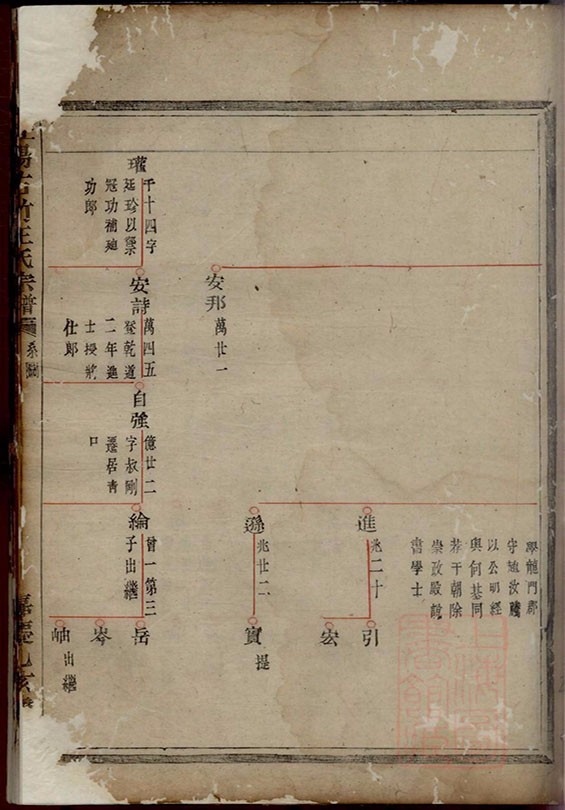 學龍門郡
守迪汝騰
以公明經
與何基同
荐于朝除
崇政殿說
書學士
進
兆二十
引
宏
遜
兆廿二
寶
提
安邦
萬廿一
瓘
千十四字
廷珍以蔡
冠功補迪
功郎
安詩
萬四五
登乾道
二年進
士授將
仕郎
自強
億廿二
字叔剛
遷居青
口
綸
曾一第三
子出繼
岳
岑
岫
出繼
王氏宗譜
系圖
嘉慶乙亥